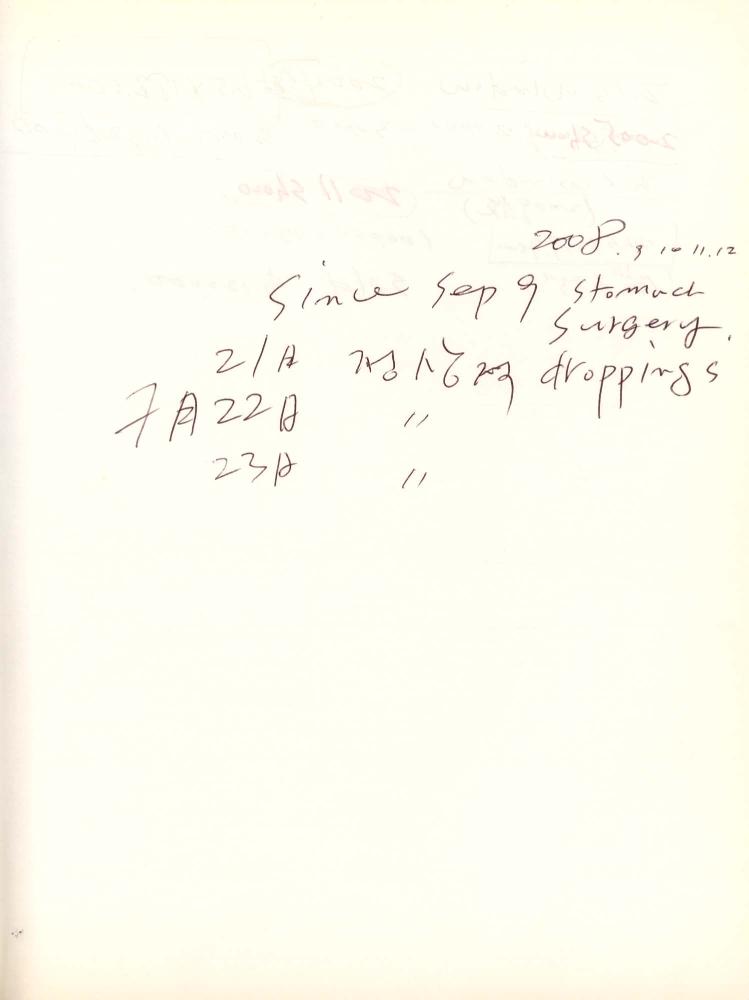 2008. 9 10 11. 12
Since Sep 9 stomach
surgery.
21日 정상적 droppings
7月 22日 "
23日 "